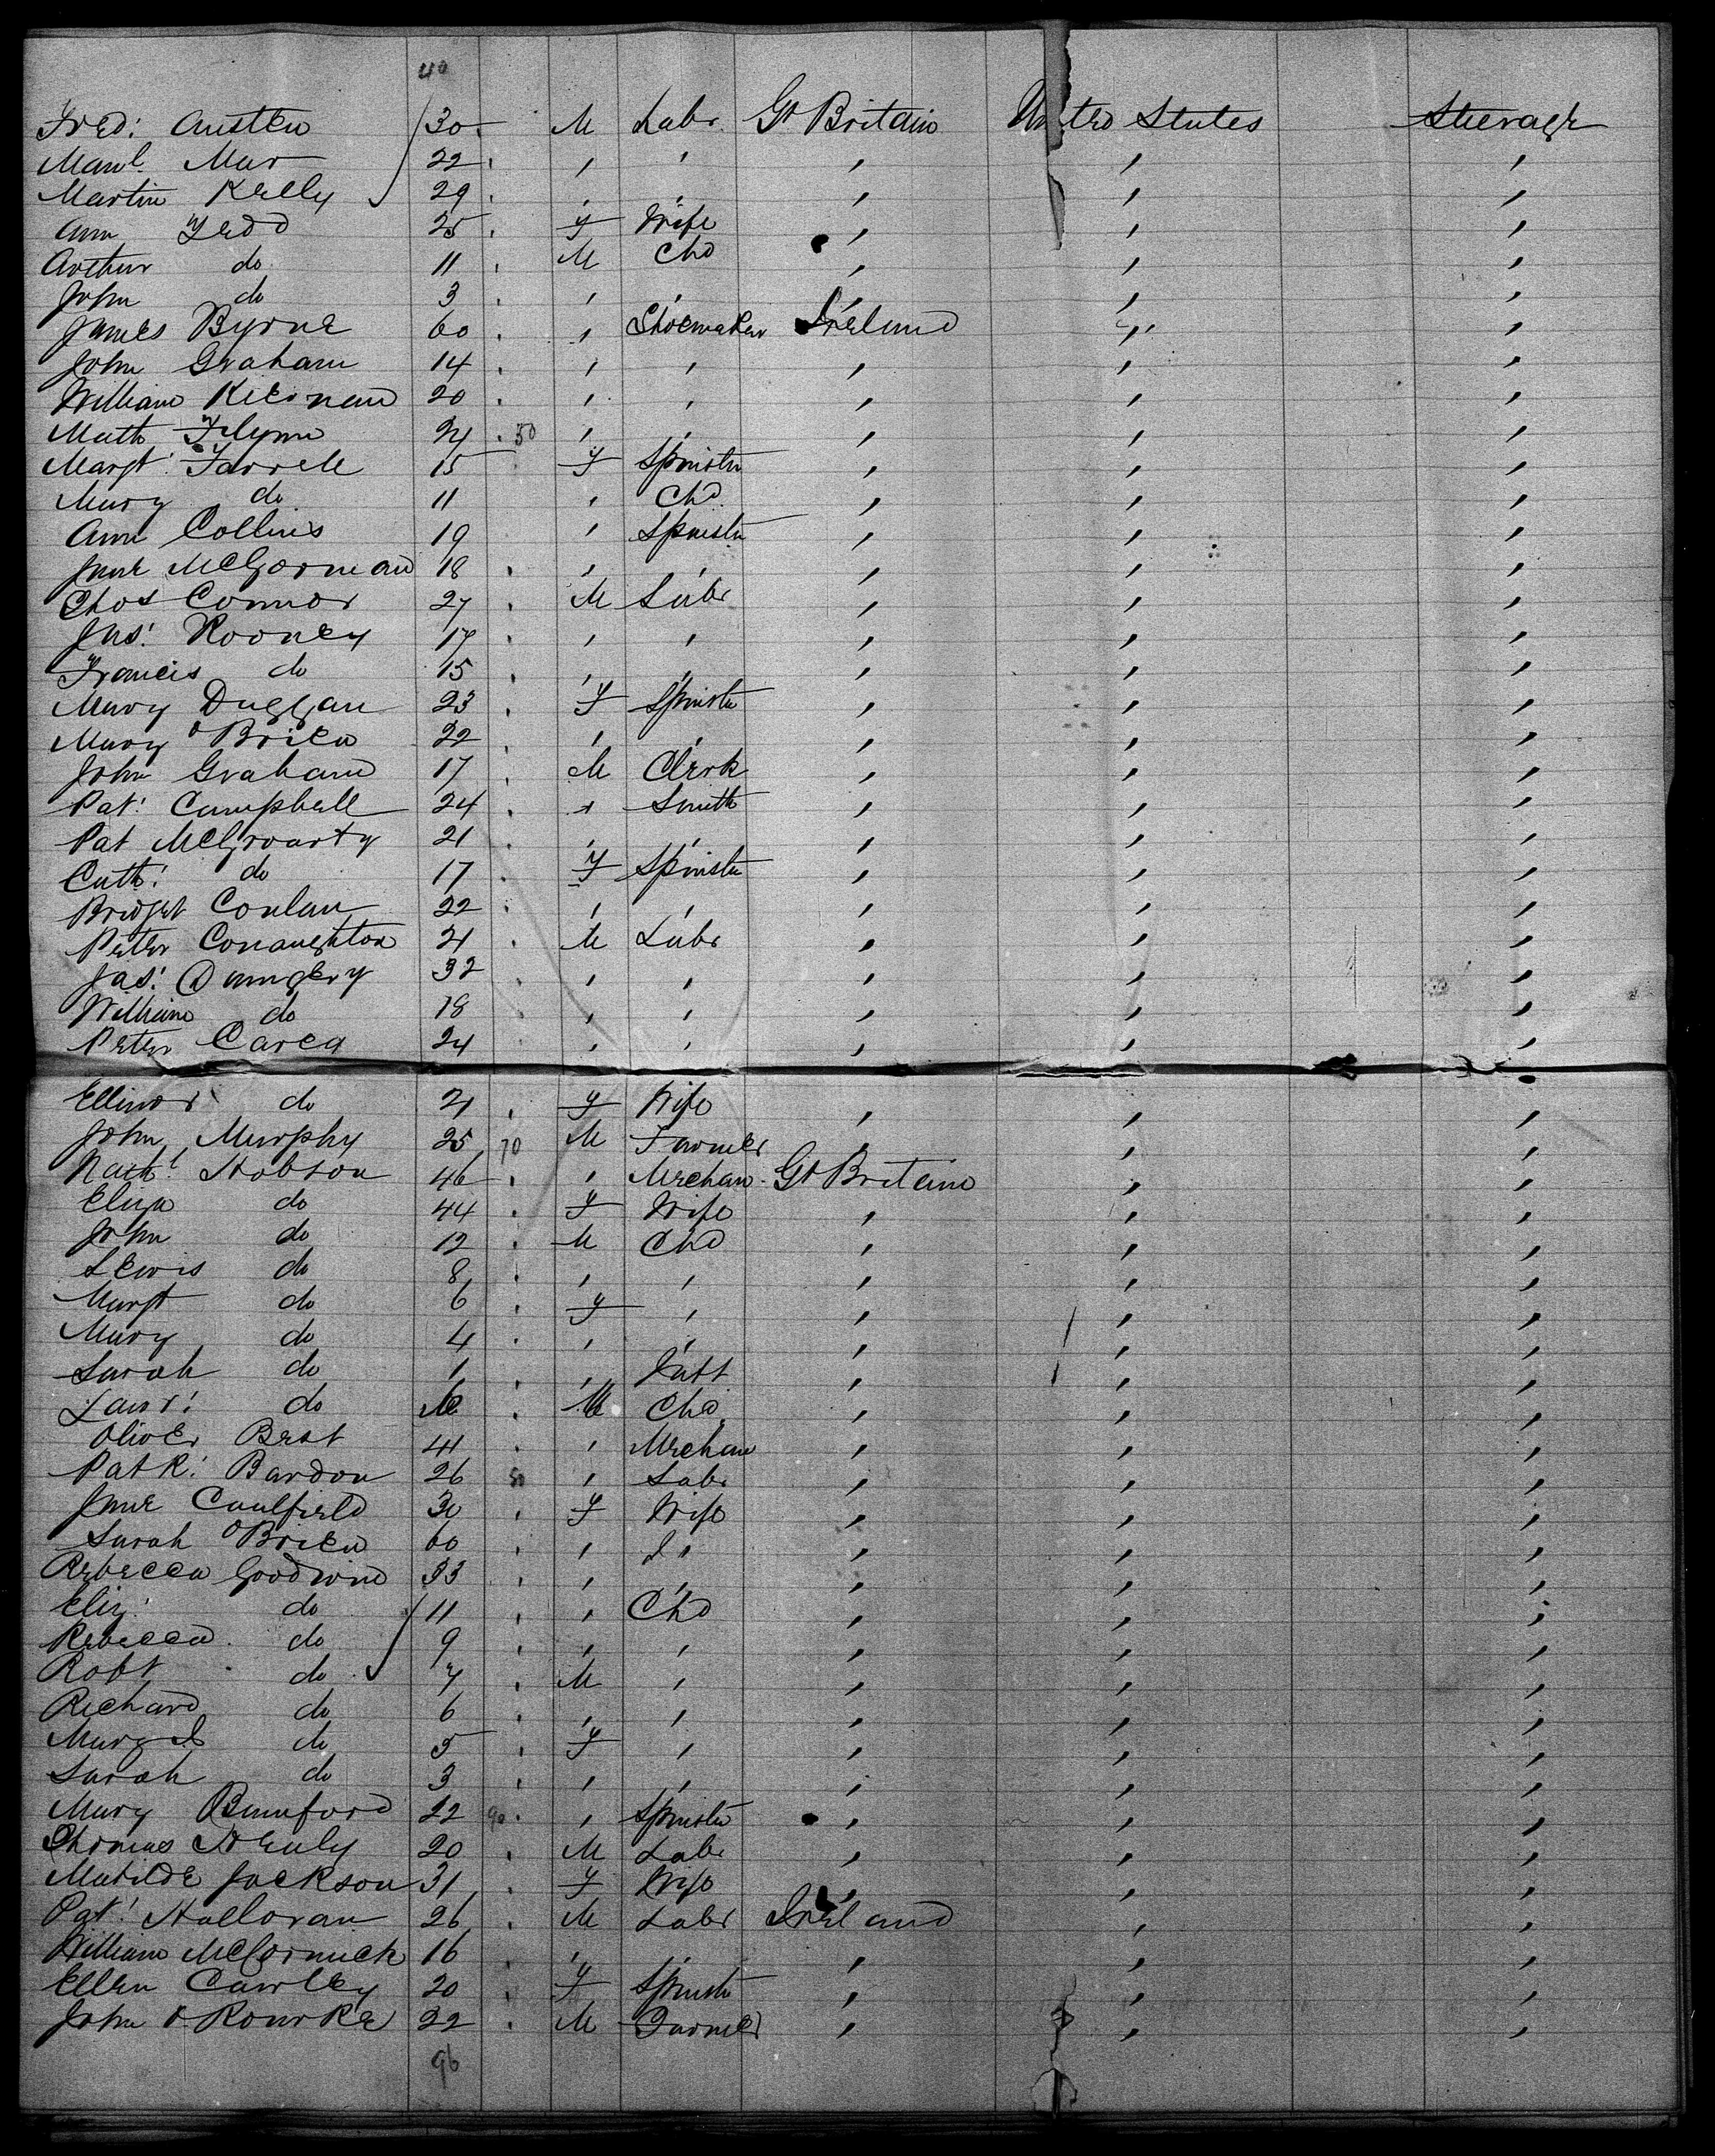 40
Fred: Austen 30 M Labr Gt Britain United States Steerage
Manl. Mar 22 , , , , ,
Martin Kelly 29 , , , , ,
Ann Tedd 25 F Wife , , ,
Arthur do 11 M Chd , , ,
John do 3 , , , , ,
James Byrne 60 , Shoemaker Ireland , ,
John Graham 14 , , , , ,
William Kiernan 20 , , , , ,
Matt Flynn 21 50 , , , , ,
Margt. Farrell 15 F Spinster , , ,
Mary do 11 , Chd , , ,
Ann Collins 19 , Spinster , , ,
Jane McGorman 18 , , , , ,
Thos Connor 27 M Labr , , ,
Jas. Rooney 17 , , , , ,
Francis do 15 , , , , ,
Mary Duggan 23 F Spinster , , ,
Mary O'Brien 22 , , , , ,
John Graham 17 M Clerk , , ,
Pat. Campbell 24 , Smith , , ,
Pat McGroarty 21 , , , , ,
Cath. do 17 F Spinster , , ,
Bridget Conlan 22 , , , , ,
Peter Conaughton 21 M Labr , , ,
Jas. 32 , , , , ,
William do 18 , , , , ,
Peter 24 , , , , ,
Ellinor do 21 F Wife , , ,
John Murphy 25 70 M Farmer , , ,
Nathl. Hobson 46 , Mechan Gt Britain , ,
Eliza do 44 F Wife , , ,
John do 12 M Chd , , ,
Lewis do 8 , , , , ,
Margt do 6 F , , , ,
Mary do 4 , , , , ,
Sarah do 1 , Inft , , ,
do M Chd , , ,
Oliver Best 41 , Mechan , , ,
Patk. Bardon 26 80 , Labr , , ,
Jane Caulfield 30 F Wife , , ,
Sarah O'Brien 60 , , , ,
Rebecca Goodwin 33 , , , , ,
Eliz. do 11 , Chd , , ,
Rebecca do 9 , , , , ,
Robt do 7 M , , , ,
Richard do 6 , , , , ,
do 5 F , , , ,
Sarah do 3 , , , , ,
Mary Bumford 22 90 , Spinster , , ,
Thomas Healy 20 M Labr , , ,
Matilda Jackson 31 F Wife , , ,
Pat. Halloran 26 M Labr Ireland , ,
William McCormick 16 , , , , ,
Ellen Cawley 20 F Spinster , , ,
John O'Rourke 22 M Farmer , , ,
96